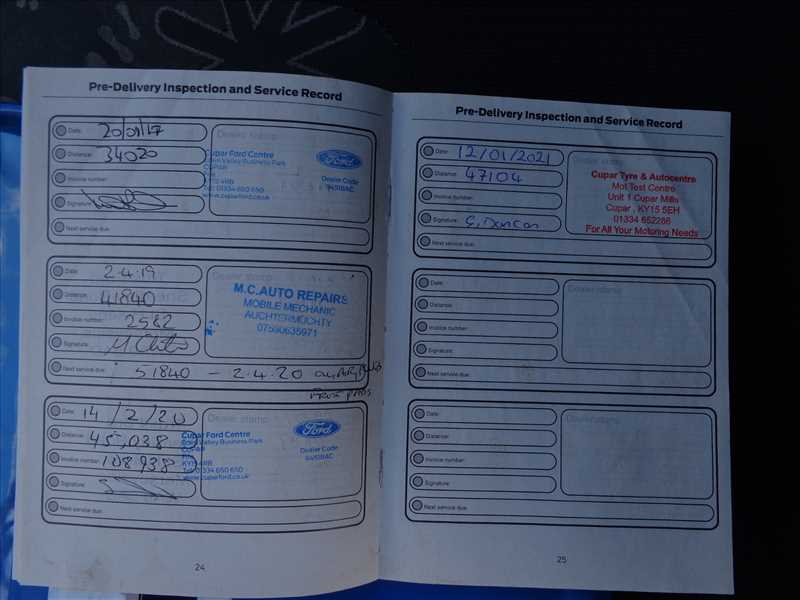 Pre-Delivery Inspection and Service Record
Date: 20/01/17
Distance: 34020
Invoice number:
Signature:
Next service due:
Dealer stamp
Cupar Ford Centre
Eden Valley Business Park
CUPAR
Fife
KY15 4RB
Tel: 01334 650 650
www.cuparford.co.uk
Ford
Dealer Code
Date: 2.4.19
Distance: 41840
Invoice number: 2582
Signature:
Next service due: 51840 - 2.4.20
Dealer stamp
M.C.AUTO REPAIRS
MOBILE MECHANIC
AUCHTERMUCHTY
07590635971
Date: 14/2/20
Distance: 45,038
Invoice number: 108938
Signature:
Next service due:
Dealer stamp
Cupar Ford Centre
Eden Valley Business Park
CUPAR
Fife
KY15 4RB
Tel: 01334 650 650
www.cuparford.co.uk
Ford
Dealer Code
24
Pre-Delivery Inspection and Service Record
Date: 12/01/2021
Distance: 47104
Invoice number:
Signature: G. Duncan
Next service due:
Dealer stamp
Cupar Tyre & Autocentre
Mot Test Centre
Unit 1 Cupar Mills
Cupar , KY15 5EH
01334 652286
For All Your Motoring Needs
Date:
Distance:
Invoice number:
Signature:
Next service due:
Dealer stamp
Date:
Distance:
Invoice number:
Signature:
Next service due:
Dealer stamp
25